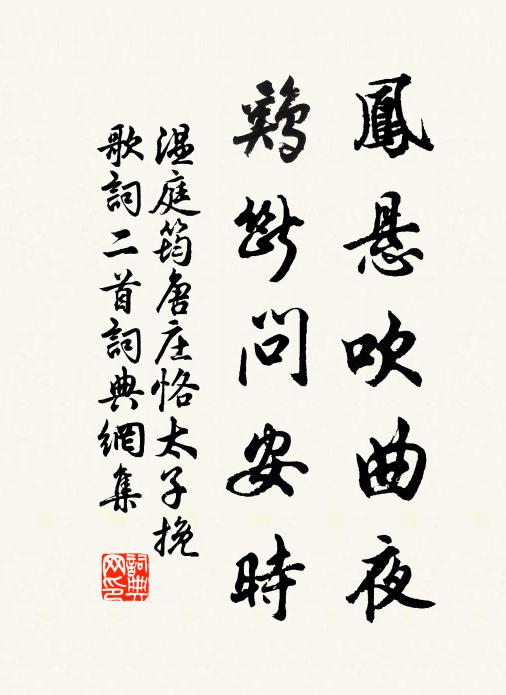 鳳悬吹曲夜
鷄斷問安時
温庭筠唐庄恪太子挽
歌詞二首詞典網集
詞典
网印